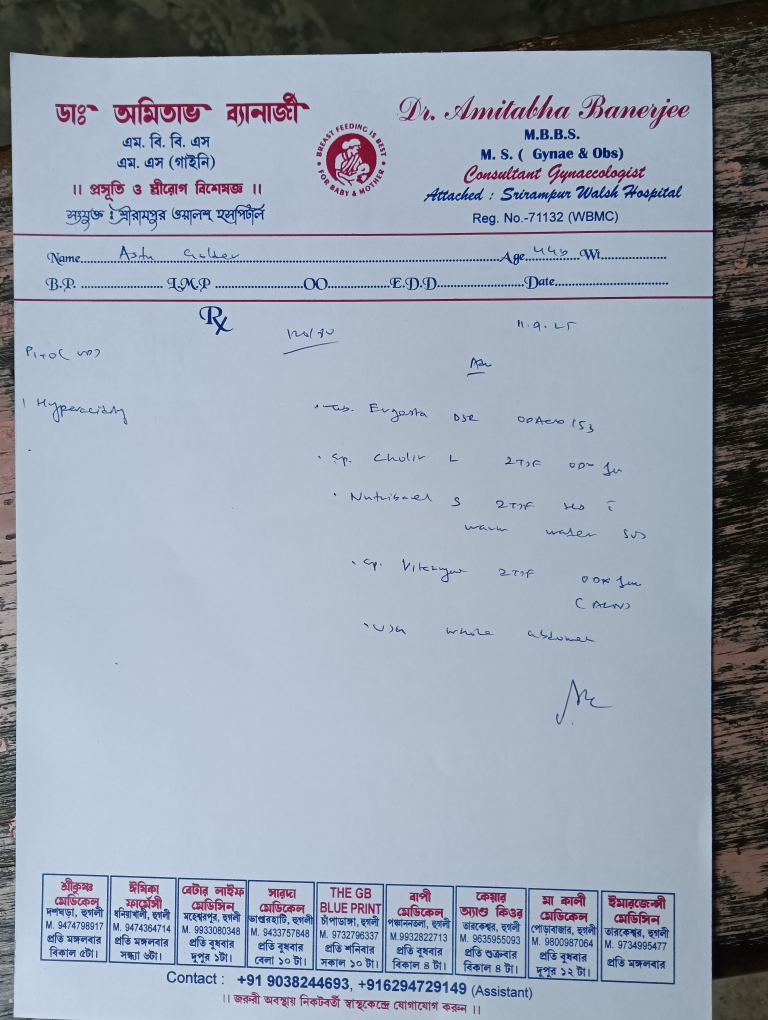 ডাঃ অমিতাভ ব্যানার্জী
এম. বি. বি. এস
এম. এস (গাইনি)
।। প্রসূতি ও স্ত্রীরোগ বিশেষজ্ঞ ।।
সংযুক্ত : শ্রীরামপুর ওয়ালশ হসপিটাল
BREAST FEEDING IS BEST
FOR BABY & MOTHER
Dr. Amitabha Banerjee
M.B.B.S.
M. S. ( Gynae & Obs)
Consultant Gynaecologist
Attached : Srirampur Walsh Hospital
Reg. No.-71132 (WBMC)
Name Age Wt
B.P. L.M.P OO E.D.D Date
Rx
11.9.25
Hyperacidity
DSR
Sp. L 2TSF
Nutribael S 2TSF
warm water
Sp. 2TSF
whole abdomen
শ্রীকৃষ্ণ মেডিকেল
দশঘড়া, হুগলী
M. 9474798917
প্রতি মঙ্গলবার
বিকাল ৫টা।
ঈষিকা ফার্মেসী
ধনিয়াখালী, হুগলী
M. 9474364714
প্রতি মঙ্গলবার
সন্ধ্যা ৬টা।
বেটার লাইফ মেডিসিন
মহেশ্বরপুর, হুগলী
M. 9933080348
প্রতি বুধবার
দুপুর ১টা।
সারদা মেডিকেল
ভাণ্ডারহাটি, হুগলী
M. 9433757848
প্রতি বুধবার
বেলা ১০ টা।
THE GB BLUE PRINT
চাঁপাডাঙ্গা, হুগলী
M. 9732796337
প্রতি শনিবার
সকাল ১০ টা।
বাপী মেডিকেল
পঞ্চাননতলা, হুগলী
M.9932822713
প্রতি বুধবার
বিকাল ৪ টা।
কেয়ার অ্যাণ্ড কিওর
তারকেশ্বর, হুগলী
M. 9635955093
প্রতি শুক্রবার
বিকাল ৪ টা।
মা কালী মেডিকেল
পোড়াবাজার, হুগলী
M. 9800987064
প্রতি বুধবার
দুপুর ১২ টা।
ইমারজেন্সী মেডিসিন
তারকেশ্বর, হুগলী
M. 9734995477
প্রতি মঙ্গলবার
Contact : +91 9038244693, +916294729149 (Assistant)
।। জরুরী অবস্থায় নিকটবর্তী স্বাস্থ্যকেন্দ্রে যোগাযোগ করুন ।।